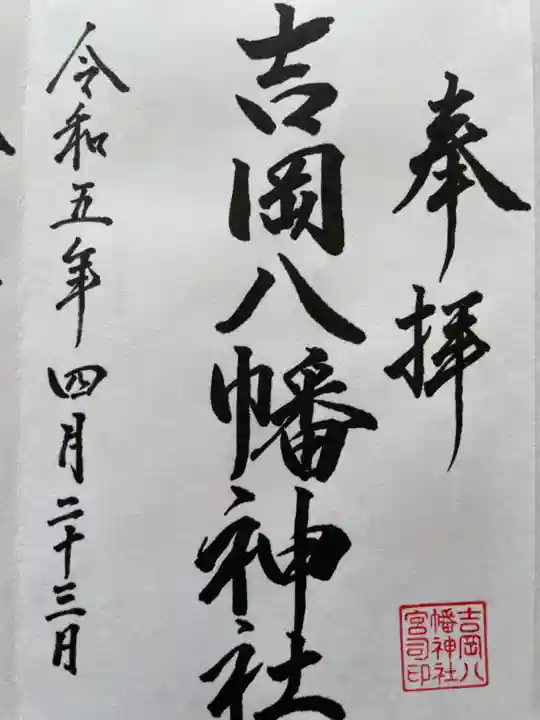 奉拝
吉岡八幡神社
令和五年四月二十三日
吉岡八
幡神社
宮司印